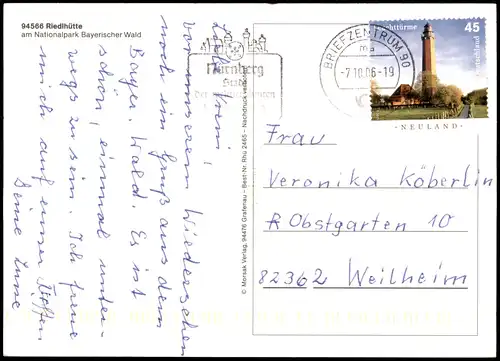 94566 Riedlhütte
am Nationalpark Bayerischer Wald
Liebe Vreni!
vor unserem Wiedersehen
noch ein Gruß aus dem
Bayer. Wald. Es ist
schön, einmal unter-
wegs zu sein. Ich freue
mich auf unser Treffen
Deine
© Morsak Verlag, 94476 Grafenau - Best-Nr. Rhü 2465 - Nachdruck verboten
Nürnberg
Stadt
BRIEFZENTRUM 90
ma
-7.10.06-19
Leuchttürme 45
Deutschland
NEULAND
Frau
Veronika Köberlin
Obstgarten 10
82362 Weilheim